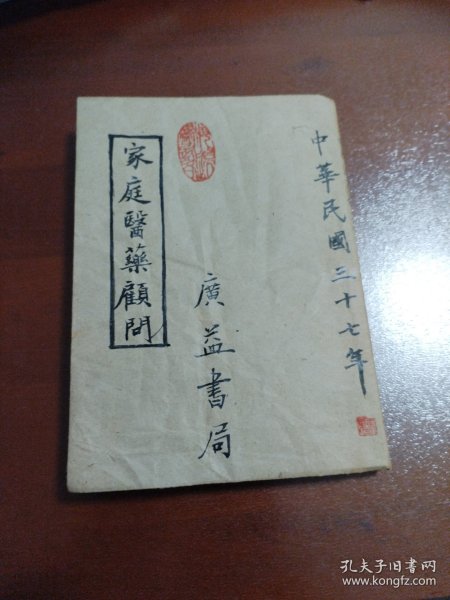 中華民國三十七年
廣益書局
家庭醫藥顧問
孔夫子旧书网
www.kongfz.com